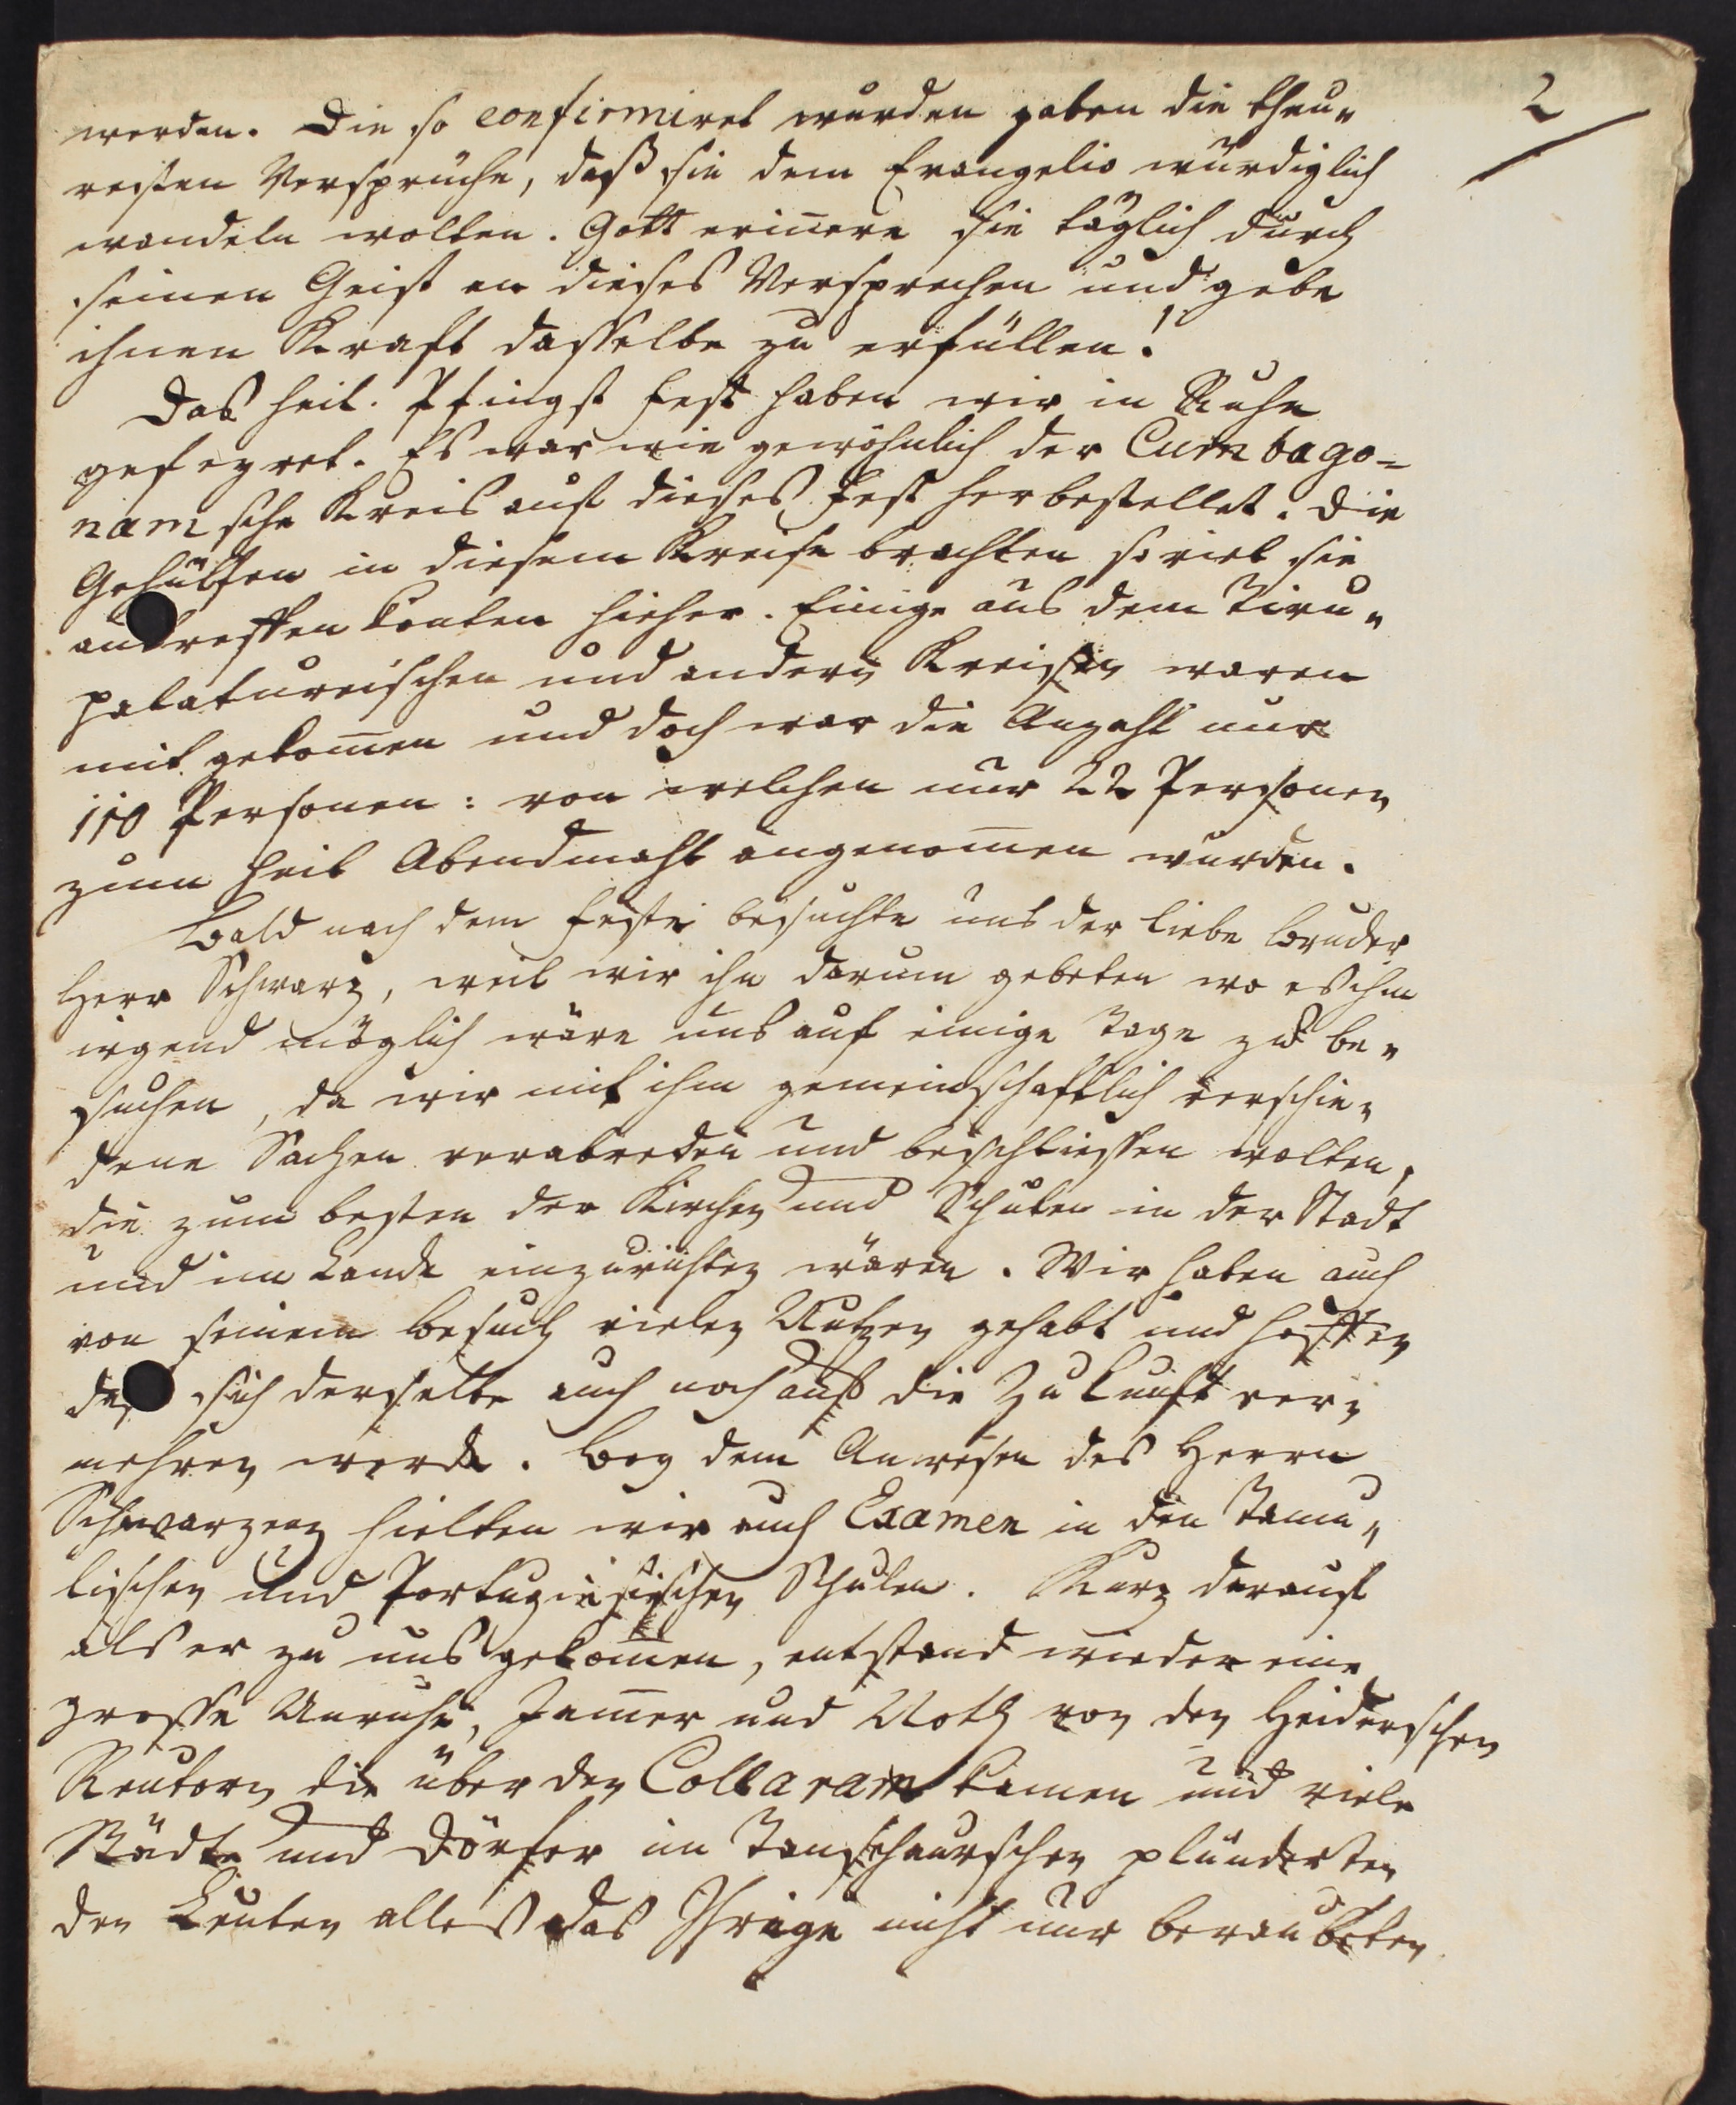 2
werden. Die so confirmiret wurden gaben die theu-
resten Versprüche, daß sie dem Evangelio würdiglich
wandeln wolten. Gott erin̄ere sie täglich durch
seinen Geist an dieses Versprechen und gebe
ihnen Kraft dasselbe zu erfüllen!
Das heil. Pfingst Fest haben wir in Ruhe
gefeyret. Es war wie gewöhnlich der Cumbago-
namsche Kreis auf dieses Fest herbestellet. Die
Gehülfen in diesem Kreise brachten so viel sie
antreffen konten hieher. Einige aus dem Tiru-
palatureischen und andern Kreisen waren
mit gekom̄en und doch war die Anzahl nur
110 Personen: von welchen nur 22 Personen
zum heil Abendmahl angenom̄en wurden.
Bald nach dem Feste besuchte uns der liebe Bruder
Herr Schwarz, weil wir ihn darum gebeten wo es ihm
irgend möglich wäre uns auf einige Tage zu be-
suchen, da wir mit ihm gemeinschaftlich verschie-
dene Sachen verabreden und beschliessen wolten,
die zum besten der Kirchen und Schulen in der Stadt
und im Lande einzurichten wären. Wir haben auch
von seinem Besuch vielen Nutzen gehabt und hoffen
daß sich derselbe auch noch auf die Zukunft ver-
mehren werde. Bey dem Anwesen des Herrn
Schwarzen hielten wir auch Examen in den Tamu-
lischen und Portugiesischen Schulen. Kurz darauf
als er zu uns gekom̄en, entstand wieder eine
grosse Unruhe, Jam̄er und Noth von den Heiderschen
Reutern die über den Collaram kamen und viele
Städte und Dörfer im Tanschaurschen plünderten
den Leuten alles das Ihrige nicht nur beraubeten